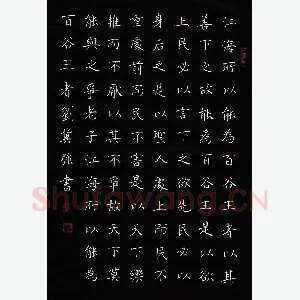 江海所以能為百谷王者以其
善下之故能為百谷王是以欲
上民必以言下之欲先民必以
身后之是以聖人處上而民不
重處前而民不害是以天下樂
推而不厭以其不爭故天下莫
能與之爭老子江海所以能為
百谷王者劉冀強書
Shufawang.CN